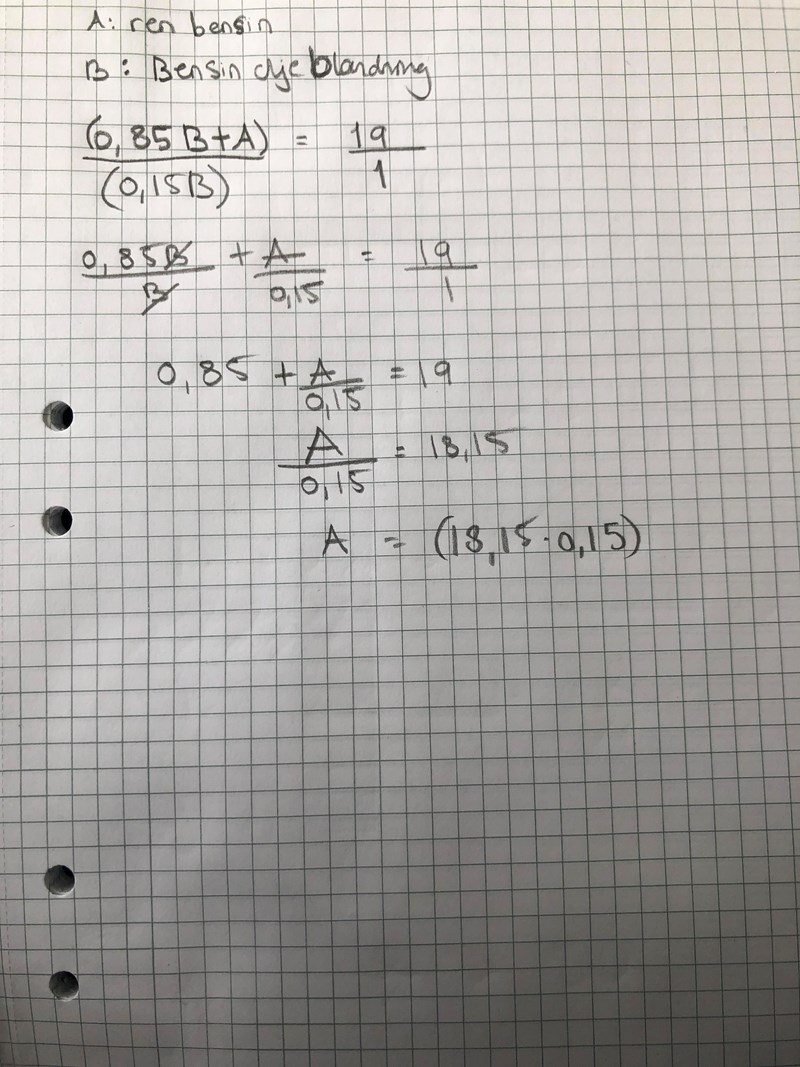 A: ren bensin
B: Bensin olje blandning
(0,85B+A) / (0,15B) = 19 / 1
0,85B / B + A / 0,15 = 19 / 1
0,85 + A / 0,15 = 19
A / 0,15 = 18,15
A = (18,15·0,15)